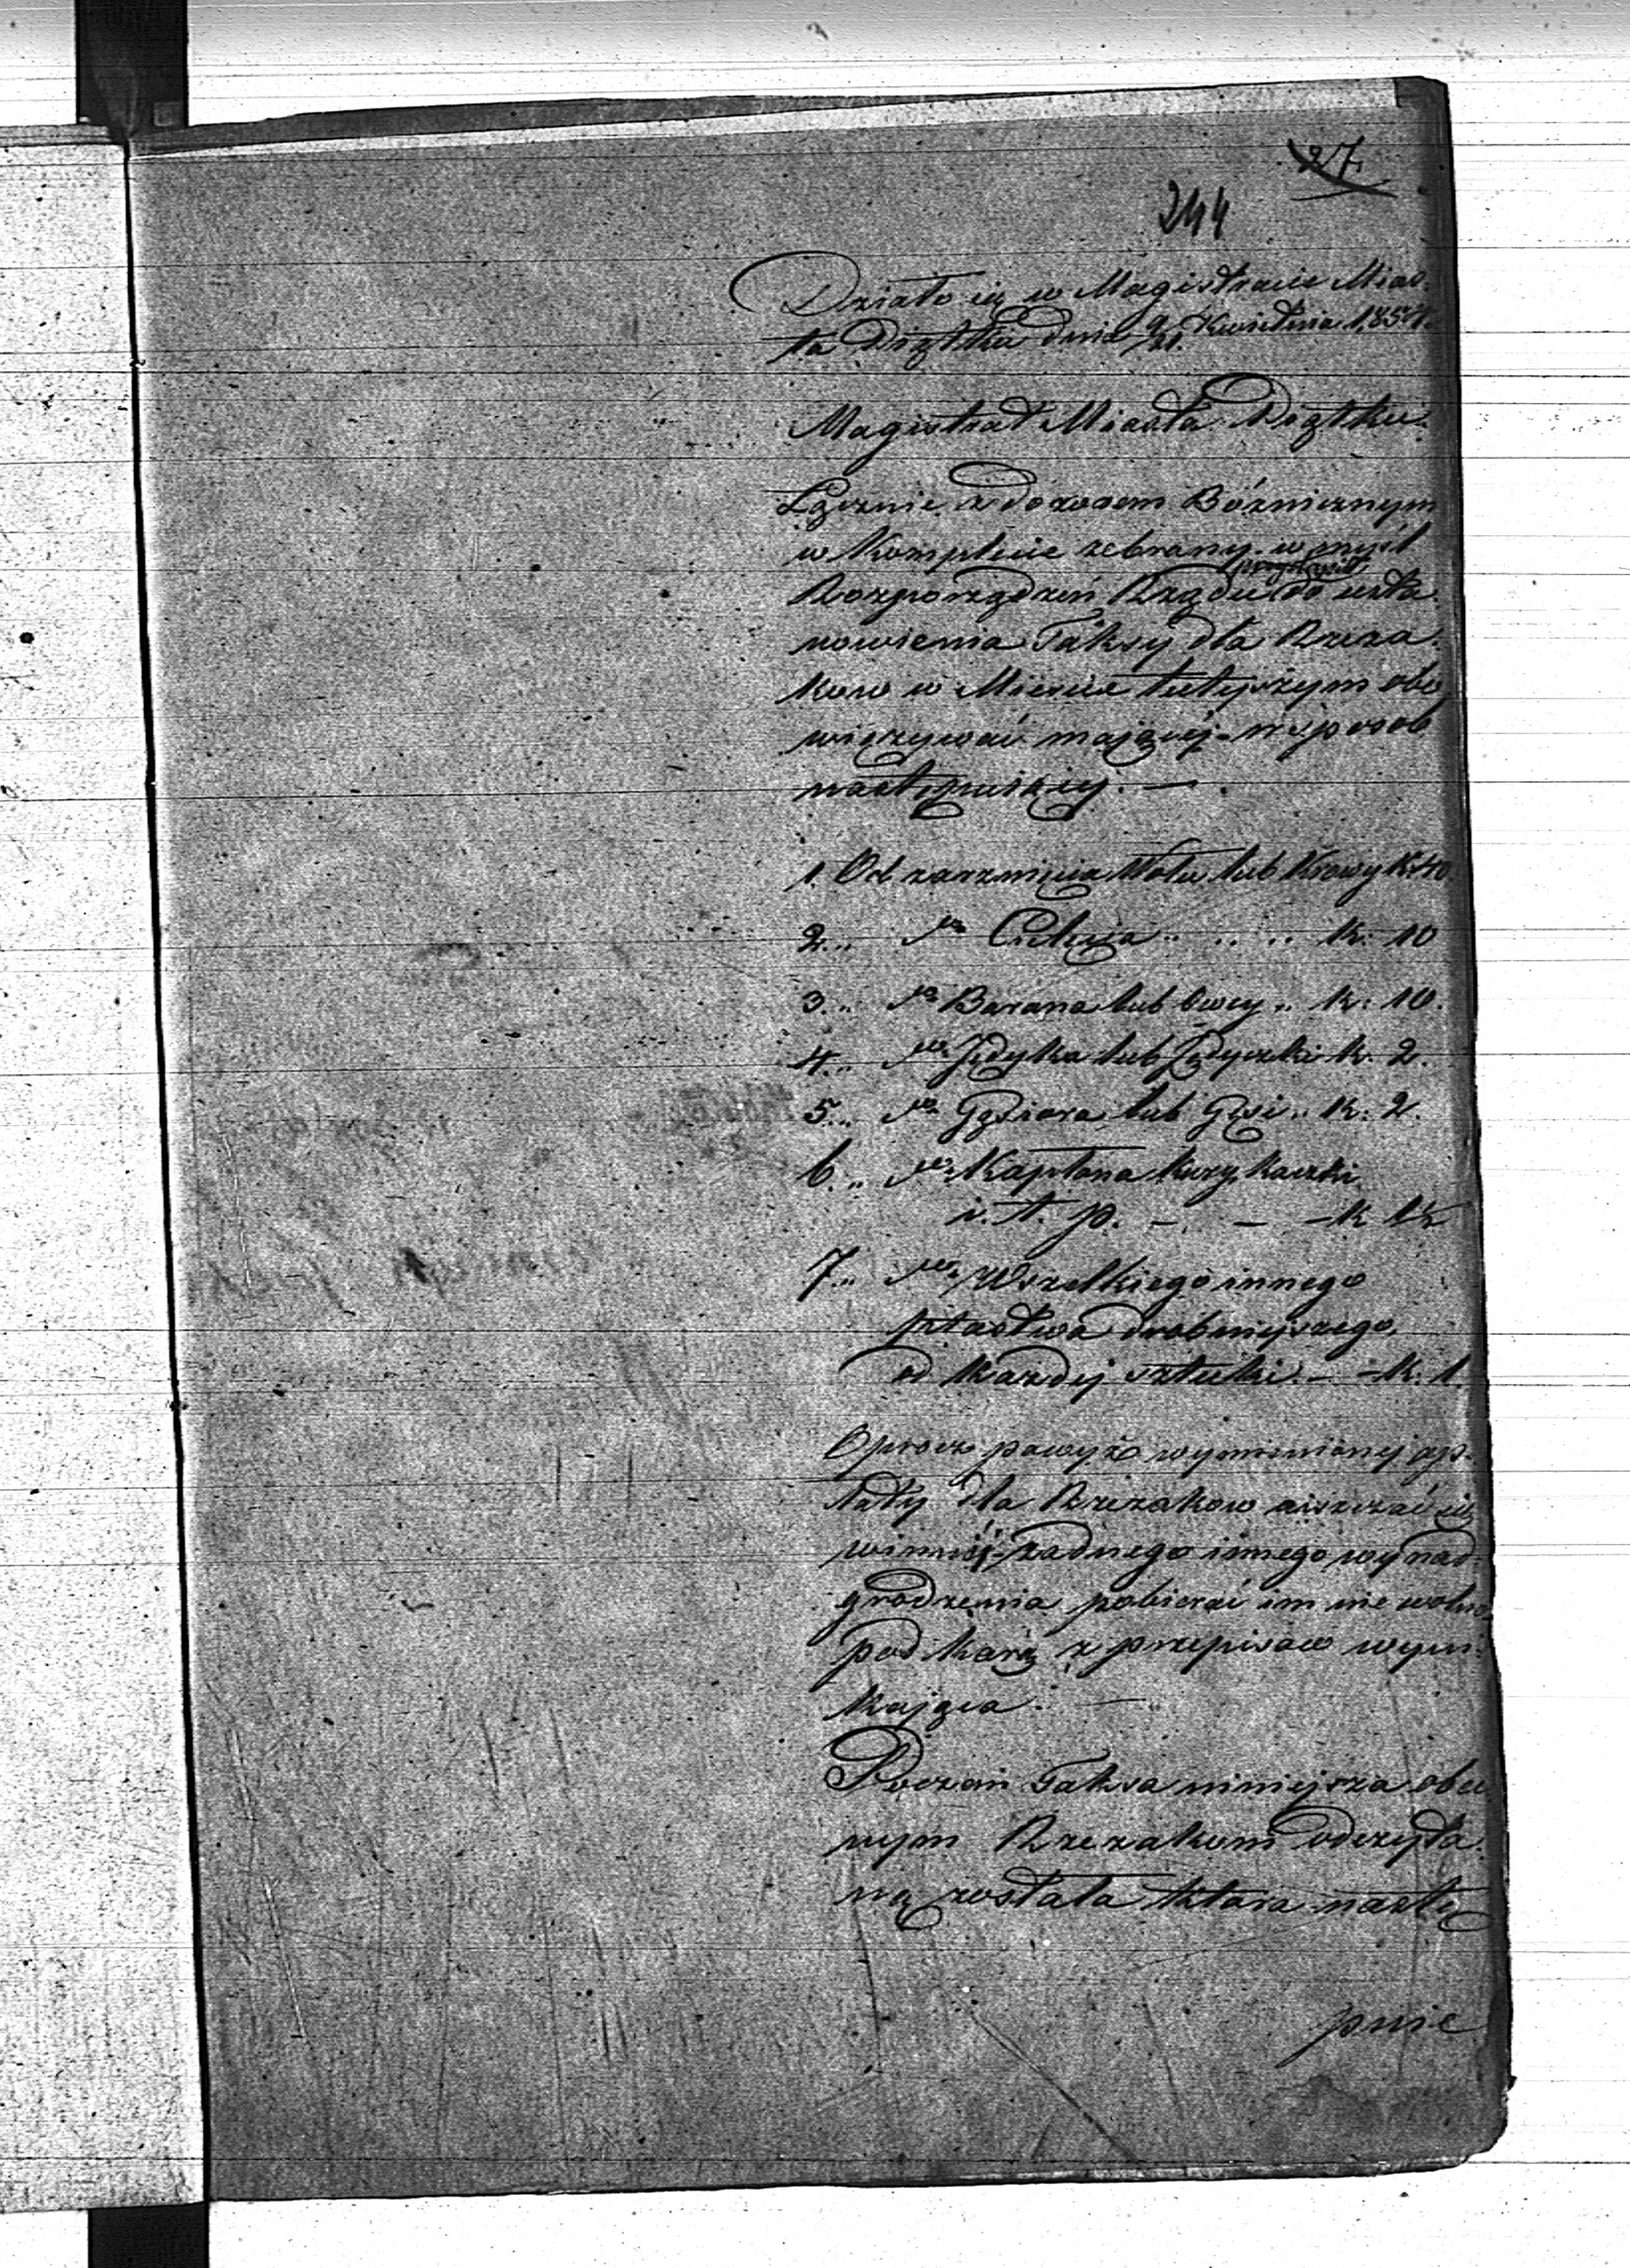 27
244
Działo się w Magistracie Mias-
ta Piątku dnia 9/21. Kwietnia 1857 r.
Magistrat Miasta Piątku.
Łącznie z dozorem Bóźnicznym
w Komplecie zebrany. w myśl
Rozporządzeń Rządu przystąpił do usta
nowienia Taksy dla Rzeza-
kow w Mieście tutejszym obo
wiązywać mającej w sposob
następujący. —
1. Od zarznięcia Wołu lub Krowy K. 40
2. „ Cielęcia „ „ „ K: 10
3. „ Barana lub Owcy „ K: 10.
4. „ Jędyka lub Jędyczki K. 2.
5. „ Gąsiora lub Gęsi „ K: 2.
6. „ Kapłona kury, kaczki
i. t. p. — — — K 1½
7. „ Wszelkiego innego
ptastwa drobniejszego,
od każdej sztuki — — K. 1.
Oprocz powyżo wymienionej op-
łaty dla Rzezakow uiszczać się
winnej, żadnego innego wynad-
grodzenia pobierać im nie wolno
pod karą z przepisow wyni-
kającą. —
Poczem Taksa niniejsza obec
nym Rzezakom odczyta-
ną została która nastę
pnie